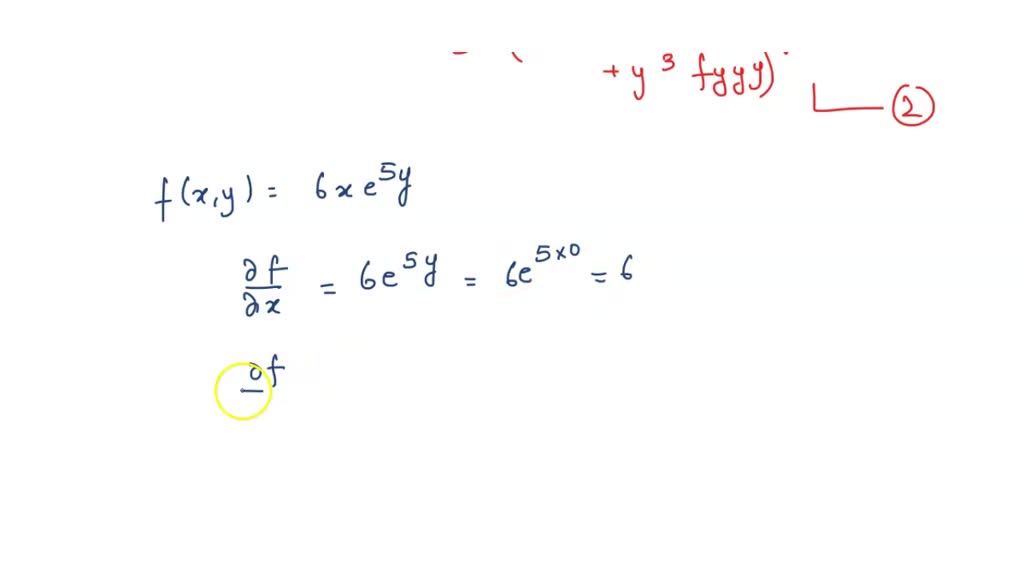 + y³ fyyy)
②
f(x,y) = 6xe^5y
∂f/∂x = 6e^5y = 6e^5×0 = 6
∂f